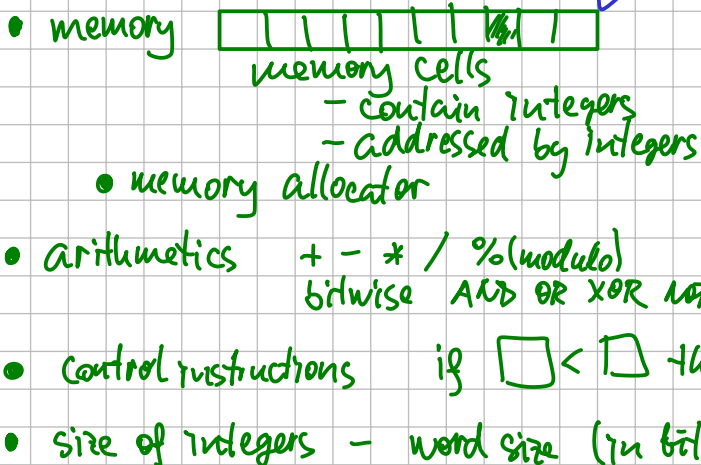 • memory
memory cells
- contain integers
- addressed by integers
• memory allocator
• arithmetics + - * / % (modulo)
bitwise AND OR XOR NO
• control instructions if □ < □ th
• size of integers - word size (in bit